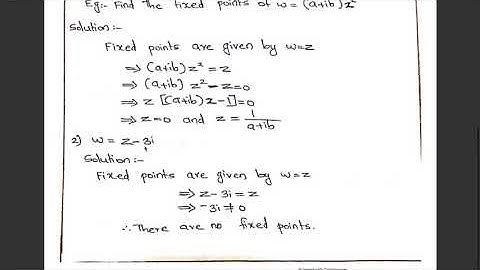 Eg:- Find the fixed points of w = (a+ib)z²
Solution:-
Fixed points are given by w=z
⇒ (a+ib)z² = z
⇒ (a+ib) z² - z = 0
⇒ z [(a+ib)z - 1] = 0
⇒ z = 0 and z = 1/(a+ib)
2) w = z - 3i
Solution:-
Fixed points are given by w=z
⇒ z - 3i = z
⇒ -3i ≠ 0
∴ There are no fixed points.